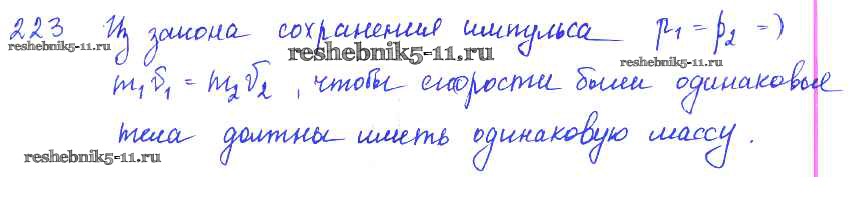 223 Из закона сохранения импульса p₁ = p₂ =>
reshebnik5-11.ru
reshebnik5-11.ru
reshebnik5-11.ru
m₁v⃗₁ = m₂v⃗₂, чтобы скорости были одинаковые
тела должны иметь одинаковую массу.
reshebnik5-11.ru